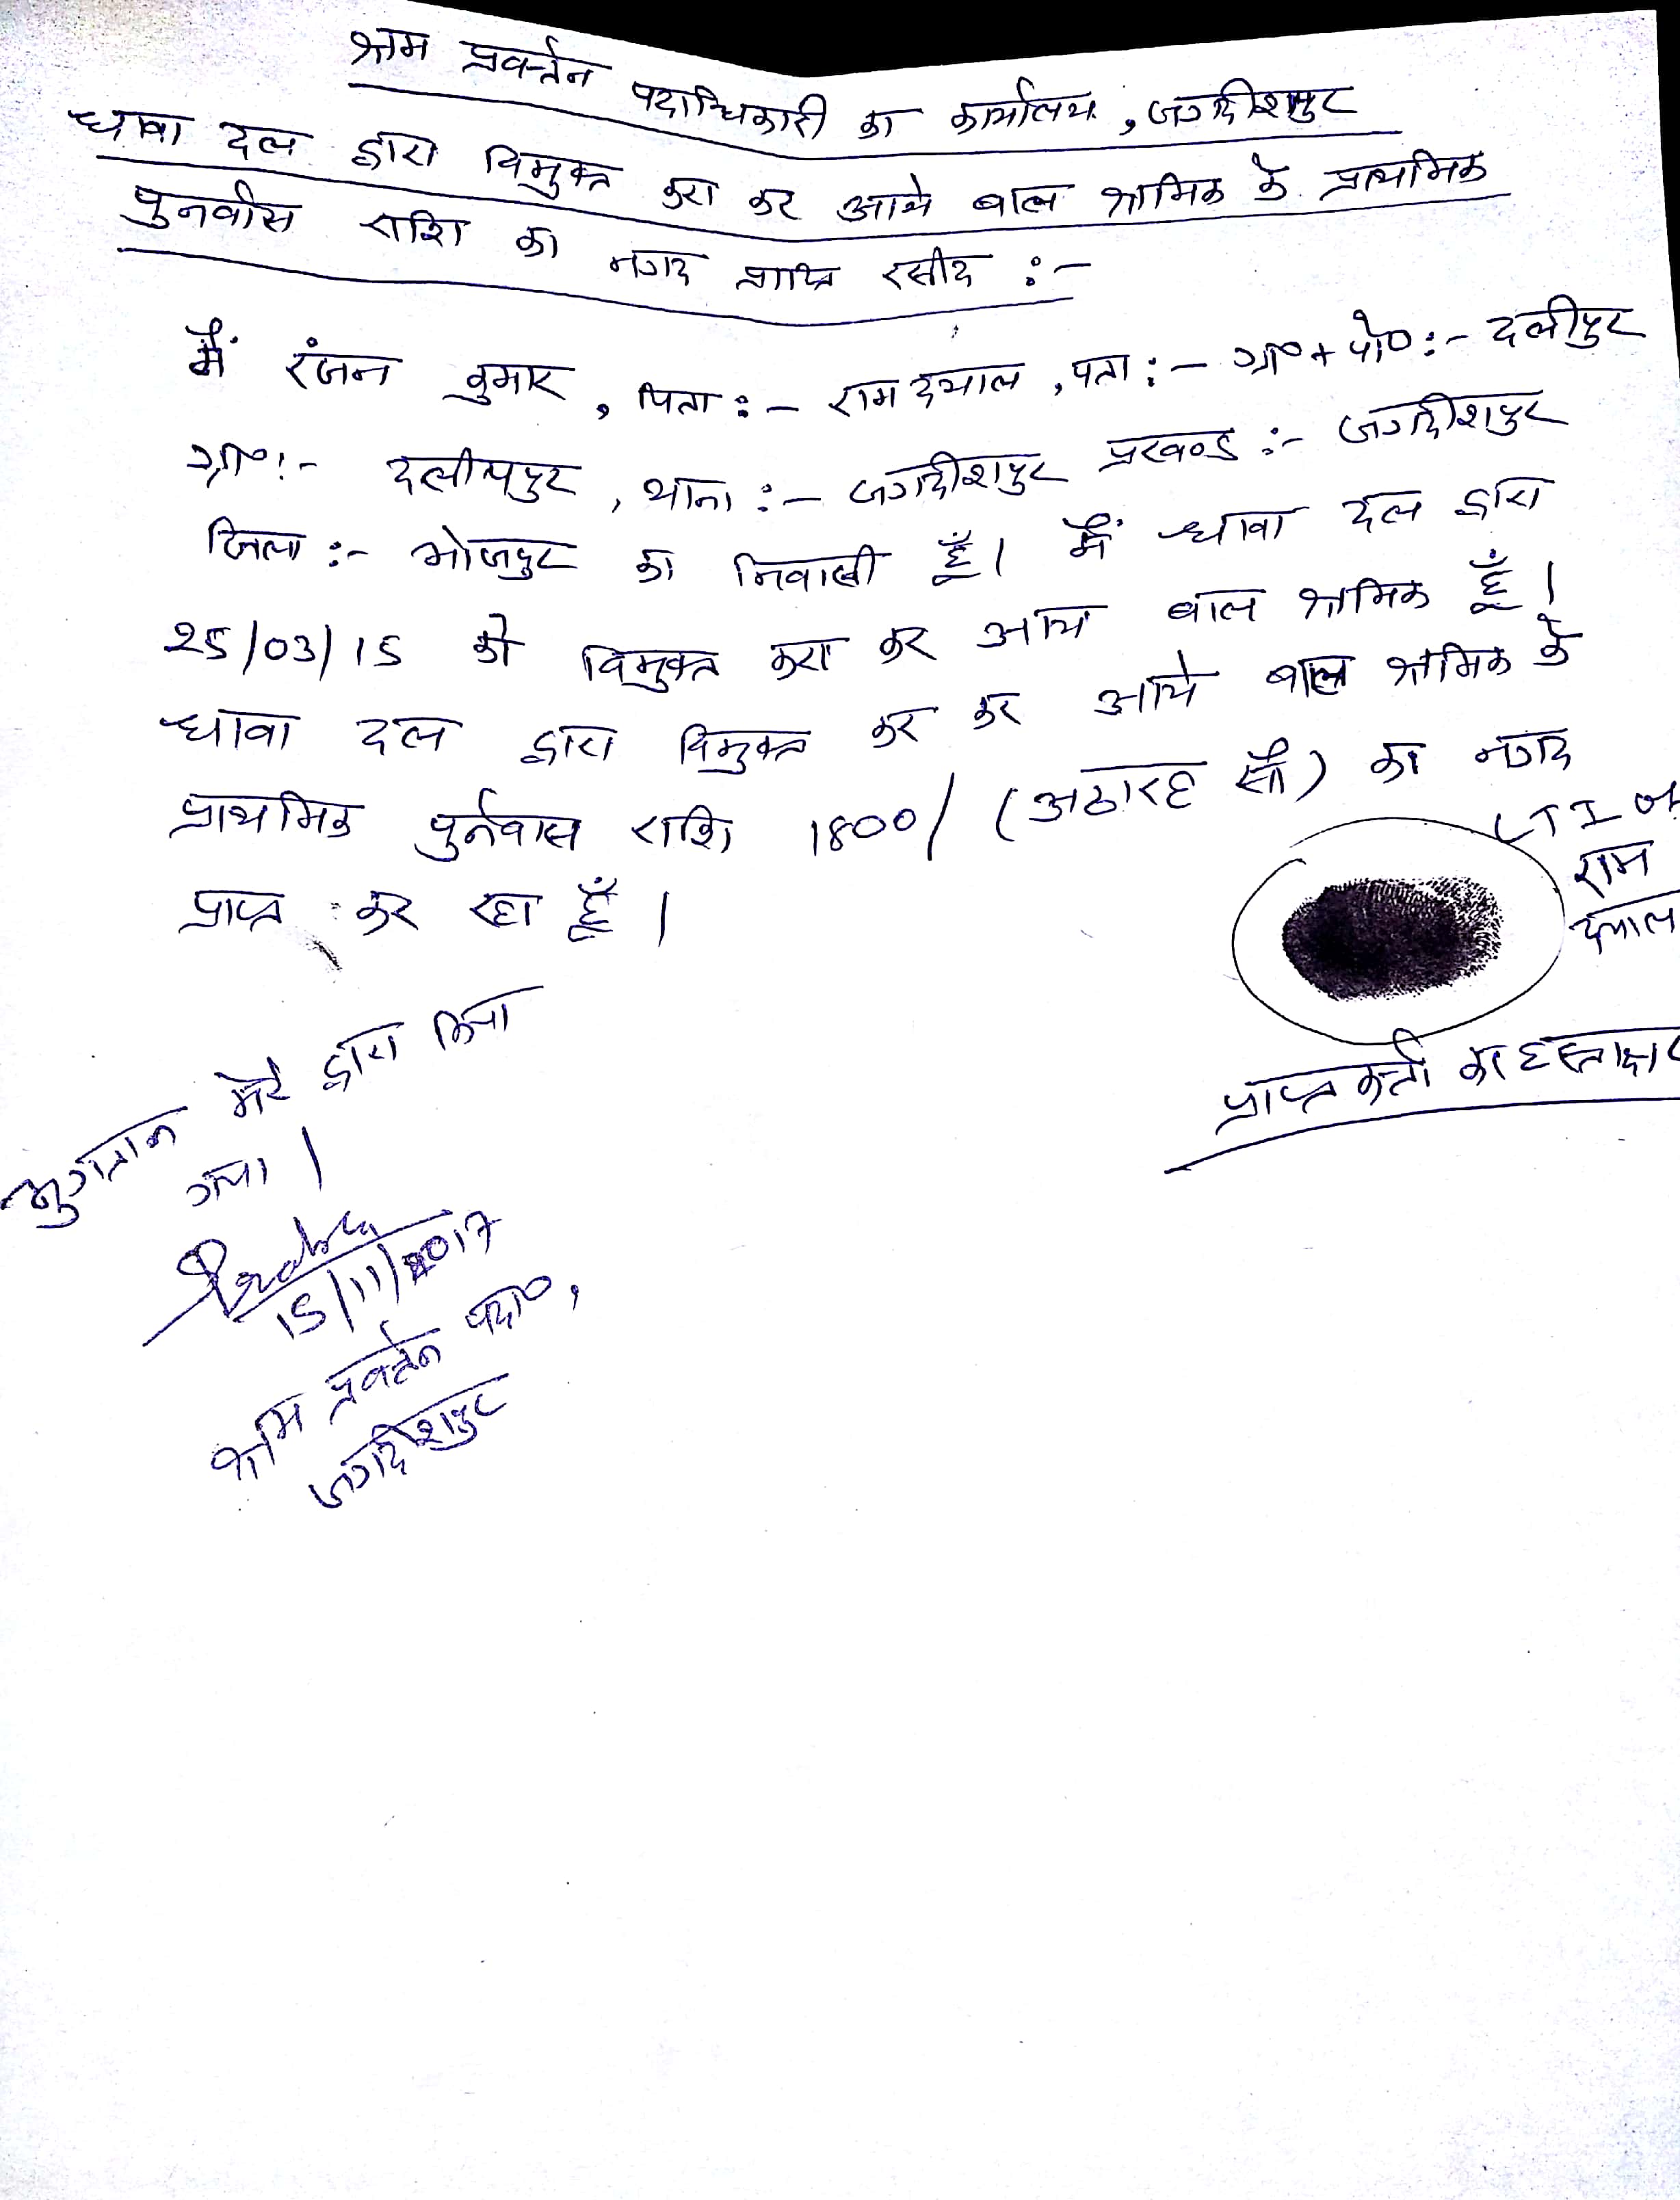 श्रम प्रवर्त्तन पदाधिकारी का कार्यालय, जगदीशपुर
धावा दल द्वारा विमुक्त करा कर आये बाल श्रमिक के प्राथमिक
पुनर्वास राशि का नगद प्राप्ति रसीद :-
मैं रंजन कुमार, पिता :- राम दयाल, पता :- ग्रा० + पो० :- दलीपुर
ग्रा० :- दलीपपुर, थाना :- जगदीशपुर प्रखण्ड :- जगदीशपुर
जिला :- भोजपुर का निवासी हूँ। मैं धावा दल द्वारा
25/03/15 को विमुक्त करा कर आय बाल श्रमिक हूँ।
धावा दल द्वारा विमुक्त कर कर आये बाल श्रमिक के
प्राथमिक पुर्नवास राशि 1800/ (अठारह सौ) का नगद
प्राप्त कर रहा हूँ।
LTI of
राम
दयाल
प्राप्त कर्ता का हस्ताक्षर
भुगतान मेरे द्वारा किया
गया।
15/11/2017
श्रम प्रवर्तन पदा०,
जगदीशपुर